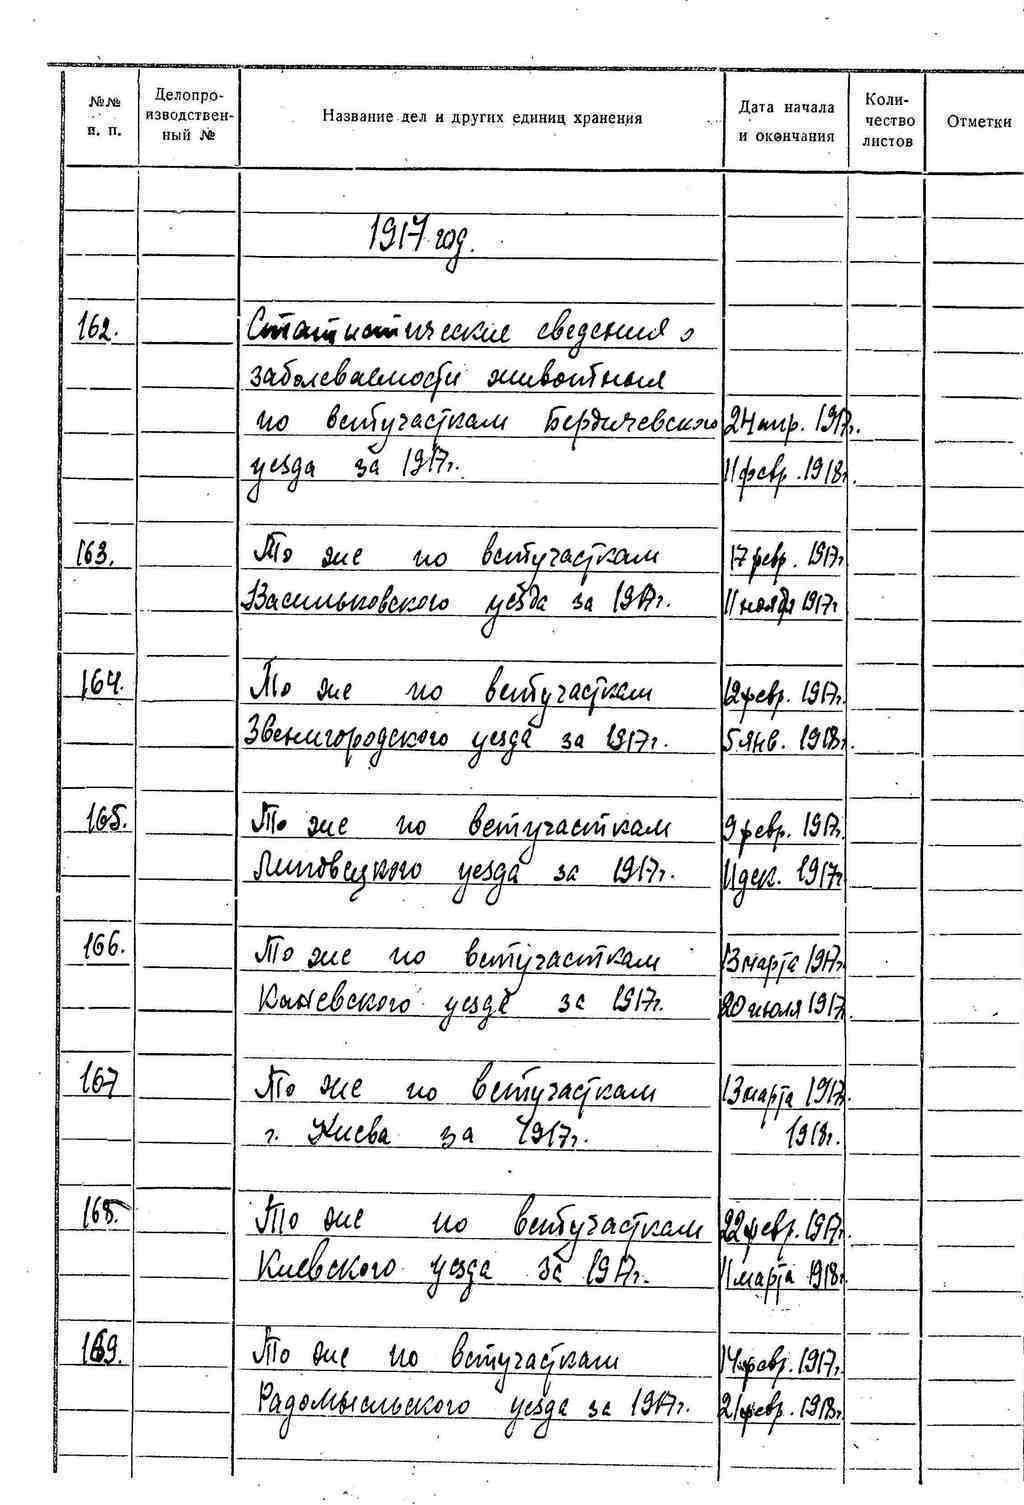 №№ п. п.
Делопро-
изводствен-
ный №
Название дел и других единиц хранения
Дата начала
и окончания
Коли-
чество
листов
Отметки
1917 год.
162. Статистические сведения о
заболеваемости животных
по ветучасткам Бердичевского 24 апр. 1917г.
уезда за 1917г. 11 февр. 1918г.
163. То же по ветучасткам 17 февр. 1917г.
Васильковского уезда за 1917г. 11 ноября 1917г.
164. То же по ветучасткам 12 февр. 1917г.
Звенигородского уезда за 1917г. 5 янв. 1918г.
165. То же по ветучасткам 9 февр. 1917г.
Липовецкого уезда за 1917г. 11 дек. 1917г.
166. То же по ветучасткам 13 марта 1917г.
Каневского уезда за 1917г. 20 июля 1917г.
167 То же по ветучасткам 13 марта 1917г.
г. Киева за 1917г. 1918г.
168. То же по ветучасткам 22 февр. 1917г.
Киевского уезда за 1917г. 11 марта 1918г.
169. То же по ветучасткам 14 февр. 1917г.
Радомысльского уезда за 1917г. 21 февр. 1918г.